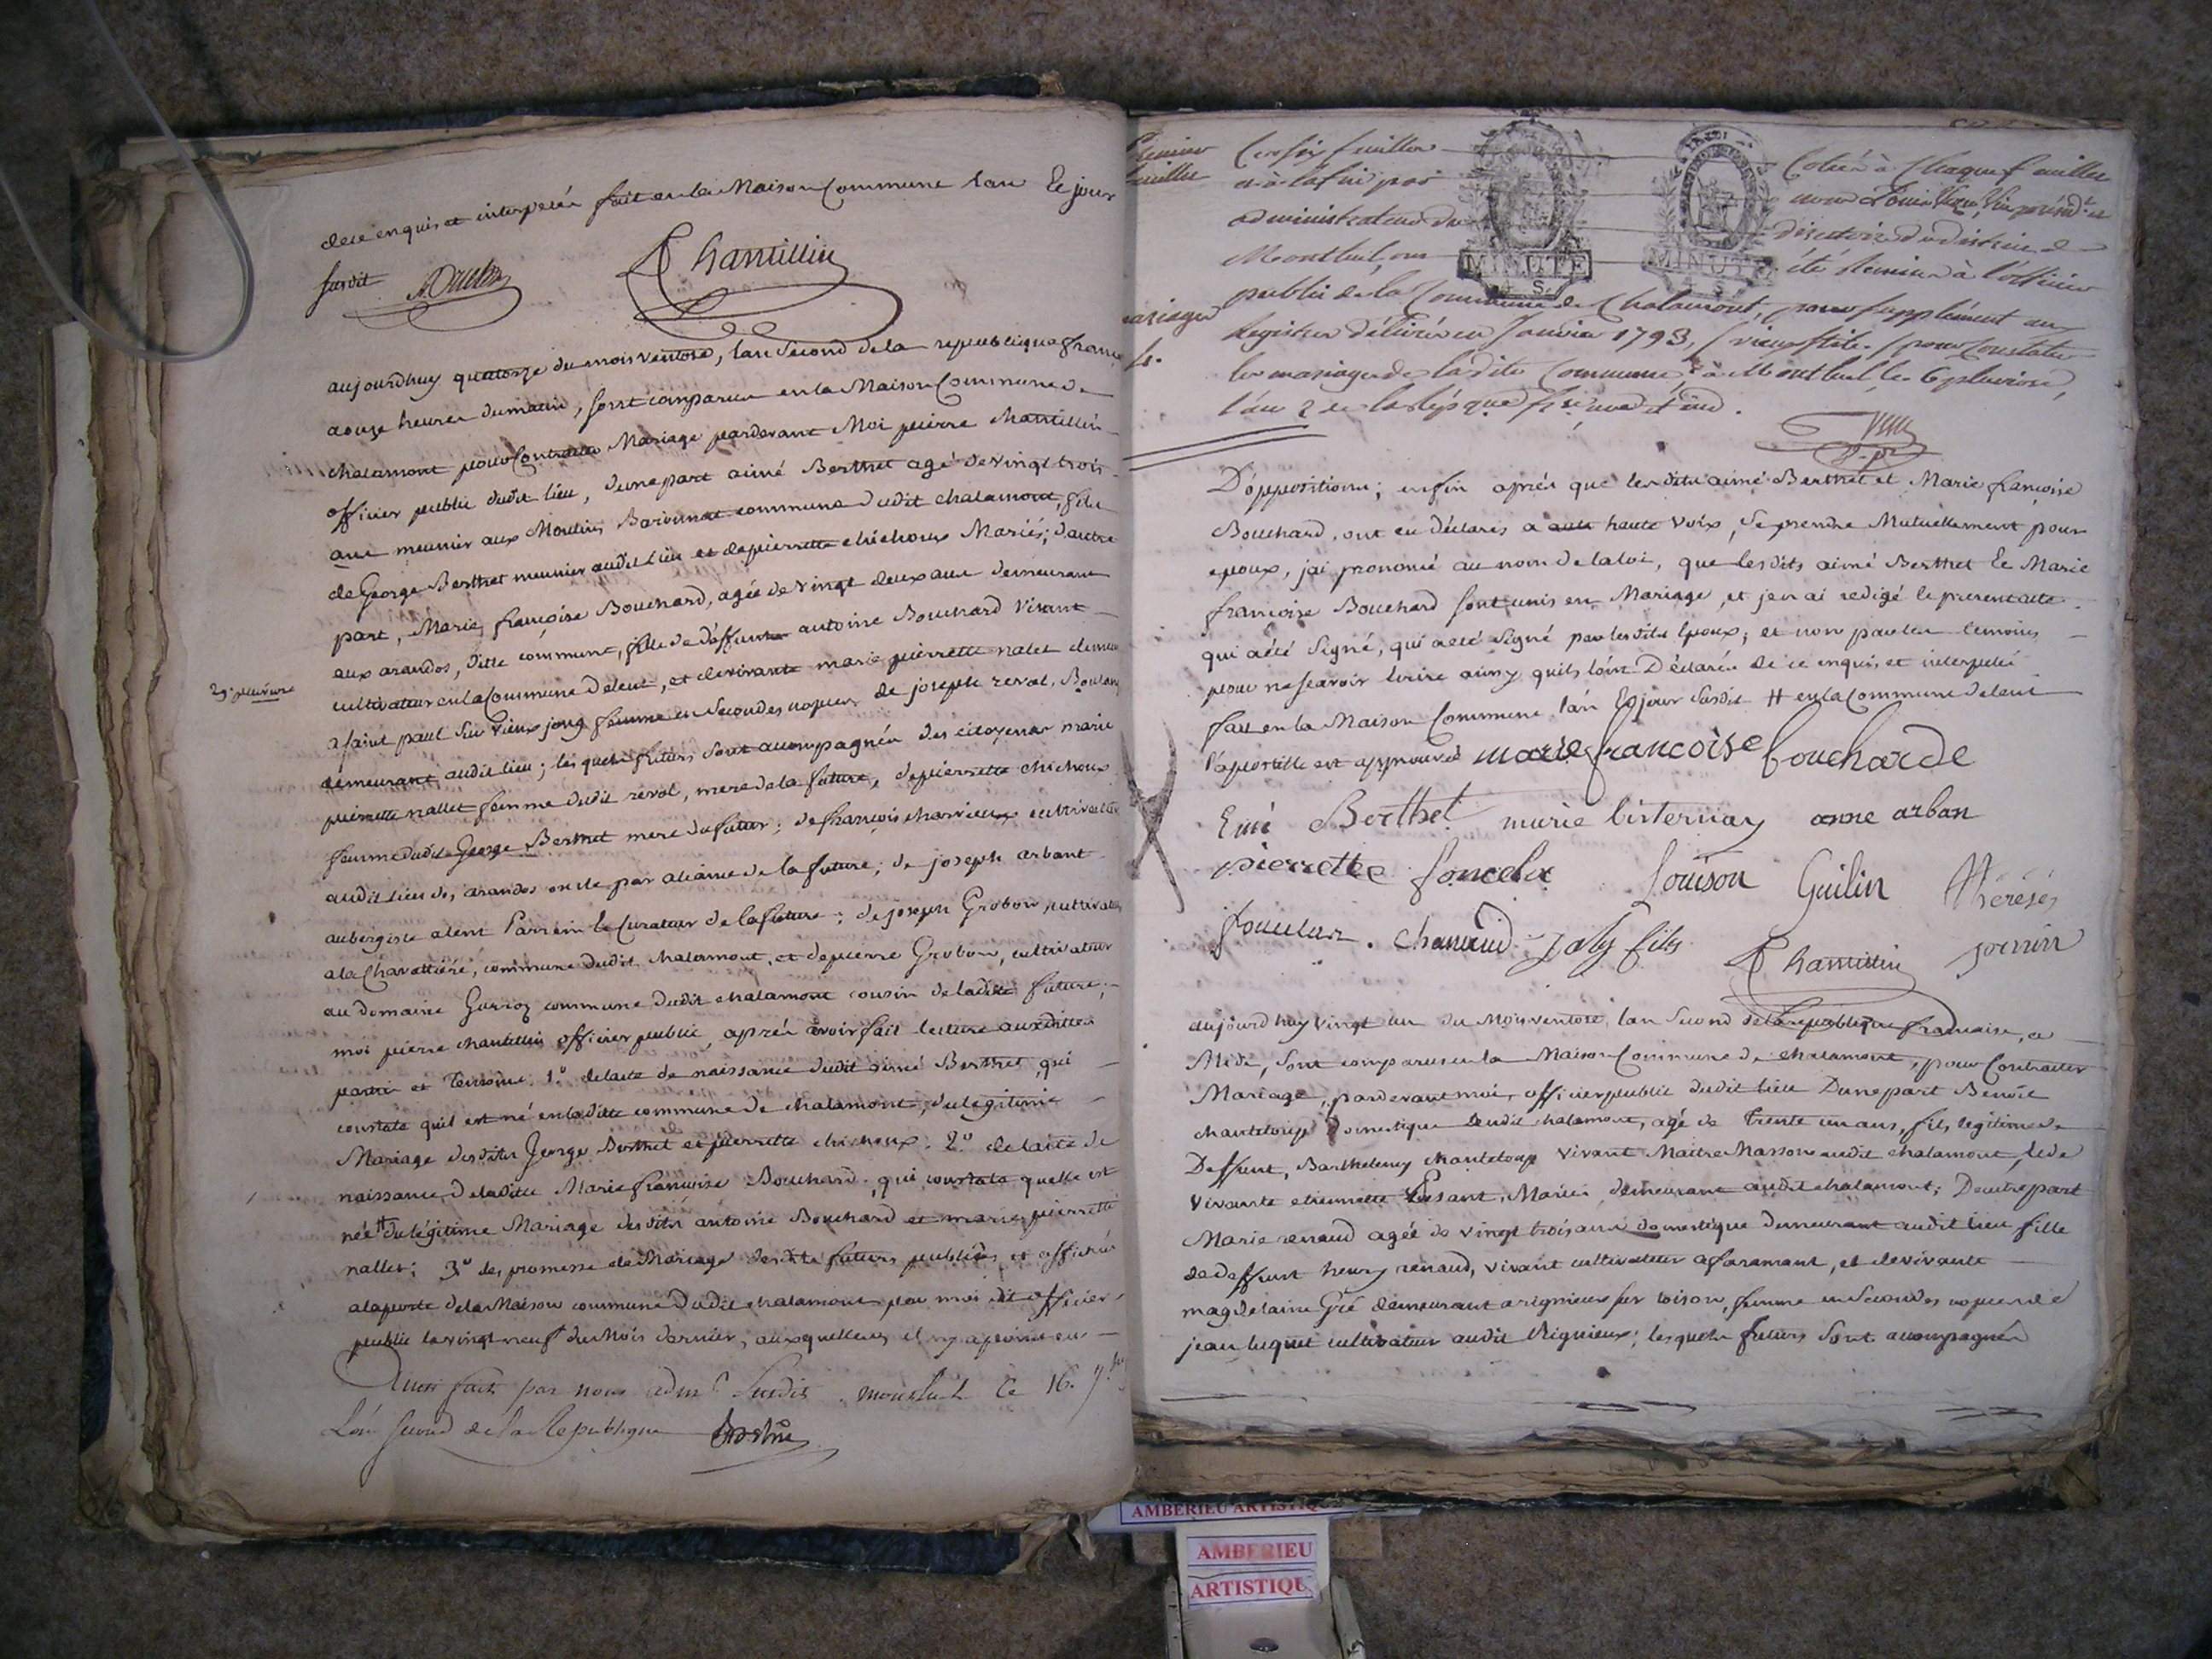 de ce enquis et interpelés fait en la Maison Commune lan Le jour
susdit
Chantillin
aujourdhuy quatorze du mois ventose, lan second de la republique franc
a onze heures du matin, sont comparus en la Maison Commune de
chalamont pour contracter Mariage pardevant Moi pierre chantillin
officier public dudit lieu, dune part aimé Berthet agé de vingt trois
ans meunier aux Moulins commune dudit chalamont, fils
de George Berthet meunier audit lieu et de pierrette chichoux Mariés; dautre
part, Marie françoise Bouchard, agée de vingt deux ans demeurant
aux arandos, ditte commune, fille de deffunt antoine Bouchard vivant
cultivateur en la Commune delent, et de vivante marie pierrette nalet demeu
29 pluviose
a saint paul de Vieux jong femme en secondes nopces de joseph reval, Boulan
demeurant audit lieu; lesquels futurs sont accompagnés des citoyennes marie
pierrette nallet femme dudit reval, mere de la future, de pierrette chichoux
femme dudit George Berthet mere du futur; de françois charvieux cultivateur
audit lieu des arandos oncle par aliance de la future; de joseph arbant
aubergiste alent Parrein et Curateur de la future; de joseph Grobon cultivateu
a la Chavattière, commune dudit chalamont, et de pierre Grobon, cultivateur
au domaine commune dudit chalamont cousin de ladite future;
moi pierre chantillin officier public, aprés avoir fait lecture auxdittes
parties et temoins 1º de lacte de naissance dudit aimé Berthet, qui
constate quil est né en laditte commune de chalamont, du legitime
Mariage desdits George Berthet et pierrette chichoux. 2º de lacte de
naissance de ladite Marie françoise Bouchard, qui constate quelle est
née # du légitime Mariage desdits antoine Bouchard et marie pierrette
nallet; 3º des promesse de Mariage desdits futurs publiées et affichés
a la porte de la Maison commune dudit chalamont par moi dit officier
public le vingt neuf du Mois dernier, auxquelles il ny a point eu
Ainsi fait par nous susdit montluel ce 16.
L'an second de la Republique
Premier
feuillet
Ces six feuillets
et à la fin par
administrateur du
Montluel, ont
Cotés à Chaque feuillet
directoire du district de
été Remis à l'officier
public de la Commune de Chalamont, pour supplément au
mariages
Registre délivré en Janvier 1793, (vieux stile) pour Constater
les mariages de ladite Commune, à Montluel, le 6 pluviose,
l'an 2 de la Répque
D'oppositions; enfin aprés que lesdits aimé Berthet et Marie françoise
Bouchard, ont eu déclarés a haute voix, de prendre Mutuellement pour
epoux, jai prononcé au nom de la loi, que lesdits aimé Berthet Et Marie
françoise Bouchard sont unis en Mariage, et jen ai redigé le present acte
qui a été Signé, qui a été Signé par lesdits Epoux, et non par les temoins
pour ne scavoir Ecrire ainsy quils lont Déclarés de ce enquis et interpellé
fait en la Maison Commune lan Et jour Susdit # en la Commune delent
l'apostille est approuvée marie francoise boucharde
Emé Berthet marie anne arban
pierrette louison Guilin Thérése
Joly fils Chantillin
aujourdhuy vingt un du Mois ventose, lan second de la republique francaise, a
Midi, sont comparus en la Maison Commune de chalamont, pour Contracter
Mariage, pardevant moi, officier public dudit lieu Dune part Benoît
chanteloup Domestique audit chalamont, agé de trente un ans, fils légitime de
Deffunt, Barthelemy chanteloup vivant Maitre Masson audit chalamont, et de
vivante Mariés demeurant audit chalamont; Dautre part
Marie renaud agée de vingt trois ans domestique demeurant audit lieu fille
de deffunt henry renaud, vivant cultivateur a faramant, et de vivante
magdelaine demeurant a rignieux sur toison, femme en Secondes nopces de
jean luquet cultivateur audit Rignieux; lesquels futurs Sont accompagnés
MINUTE
MINUTE
AMBERIEU ARTISTIQUE
AMBERIEU
ARTISTIQU